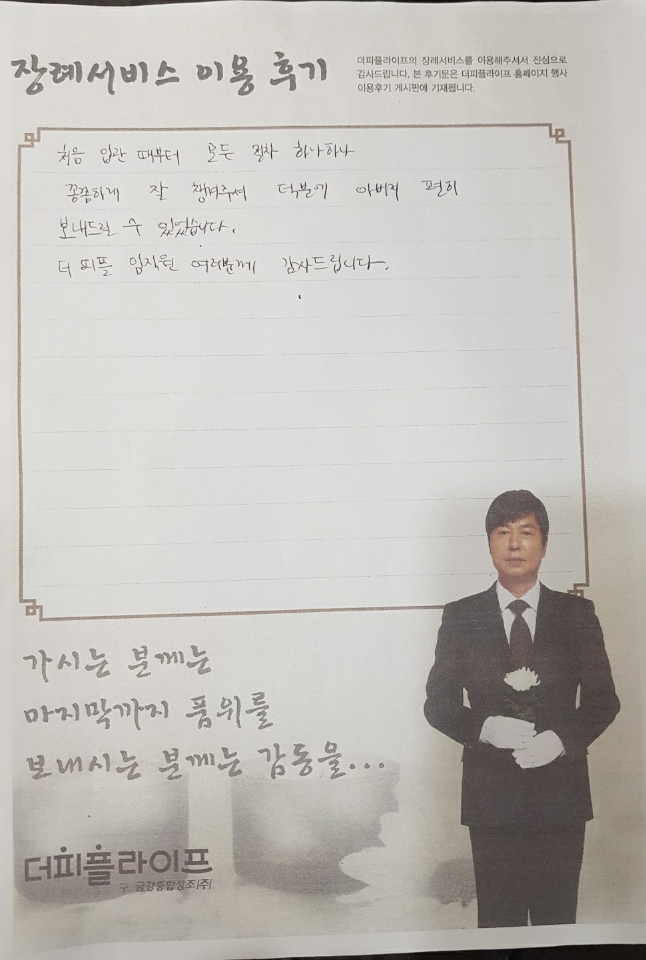 장례서비스 이용 후기
더피플라이프의 장례서비스를 이용해주셔서 진심으로
감사드립니다. 본 후기문은 더피플라이프 홈페이지 행사
이용후기 게시판에 기재됩니다.
처음 입관 때부터 모든 절차 하나하나
꼼꼼하게 잘 챙겨주셔 덕분에 아버지 편히
보내드릴 수 있었습니다.
더 피플 임직원 여러분께 감사드립니다.
가시는 분께는
마지막까지 품위를
보내시는 분께는 감동을...
더피플라이프
구 금강종합상조(주)